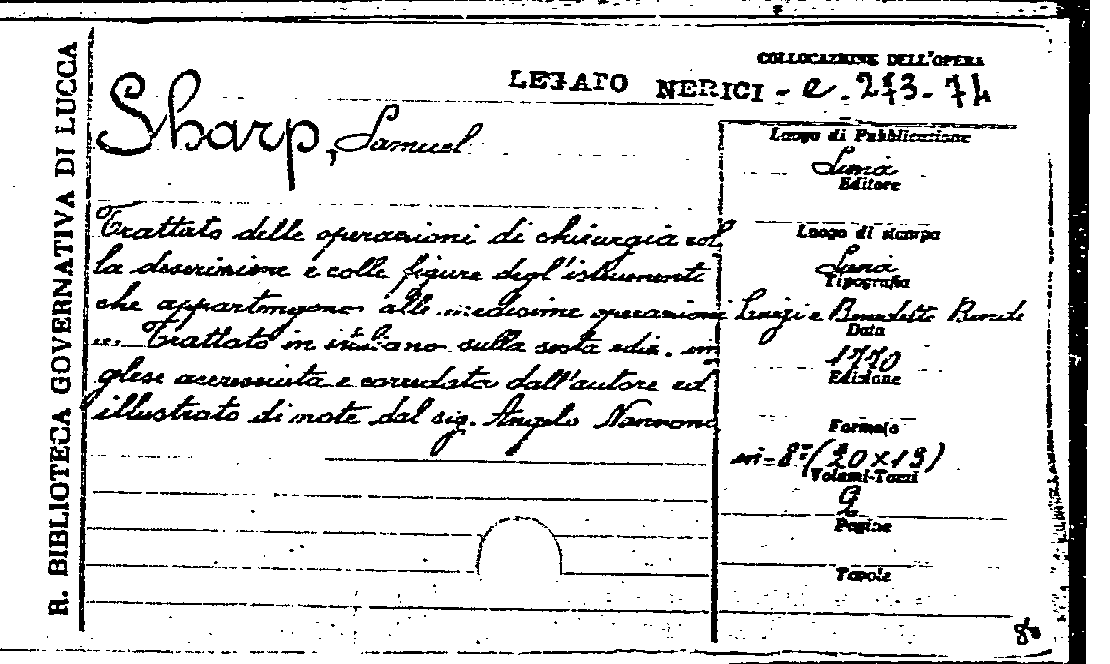 R. BIBLIOTECA GOVERNATIVA DI LUCCA
COLLOCAZIONE DELL'OPERA
LEGATO NERICI - e. 273-74
Sharp, Samuel
Trattato delle operazioni di chirurgia col
la descrizione e colle figure degl'istrumenti
che appartengono alle medesime operazioni
... Trattato in italiano sulla sesta ediz. in
glese accresciuta e corredata dall'autore ed
illustrato di note dal sig. Angelo Nannoni
Luogo di Pubblicazione
Siena
Editore
Luogo di stampa
Siena
Tipografia
Luigi e Benedetto Bindi
Data
1770
Edizione
Formato
in-8° (20x13)
Volumi-Tomi
2
Pagine
Tavole